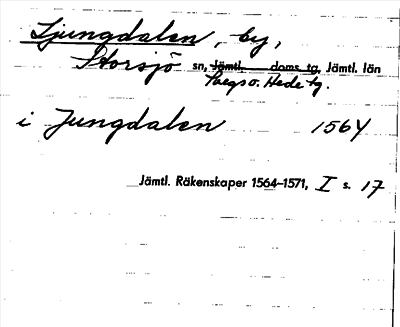 Ljungdalen, by,
Storsjö sn, Jämtl. doms. tg, Jämtl. län
o. Hede tg.
i Jungdalen 1564
Jämtl. Räkenskaper 1564–1571, I s. 17